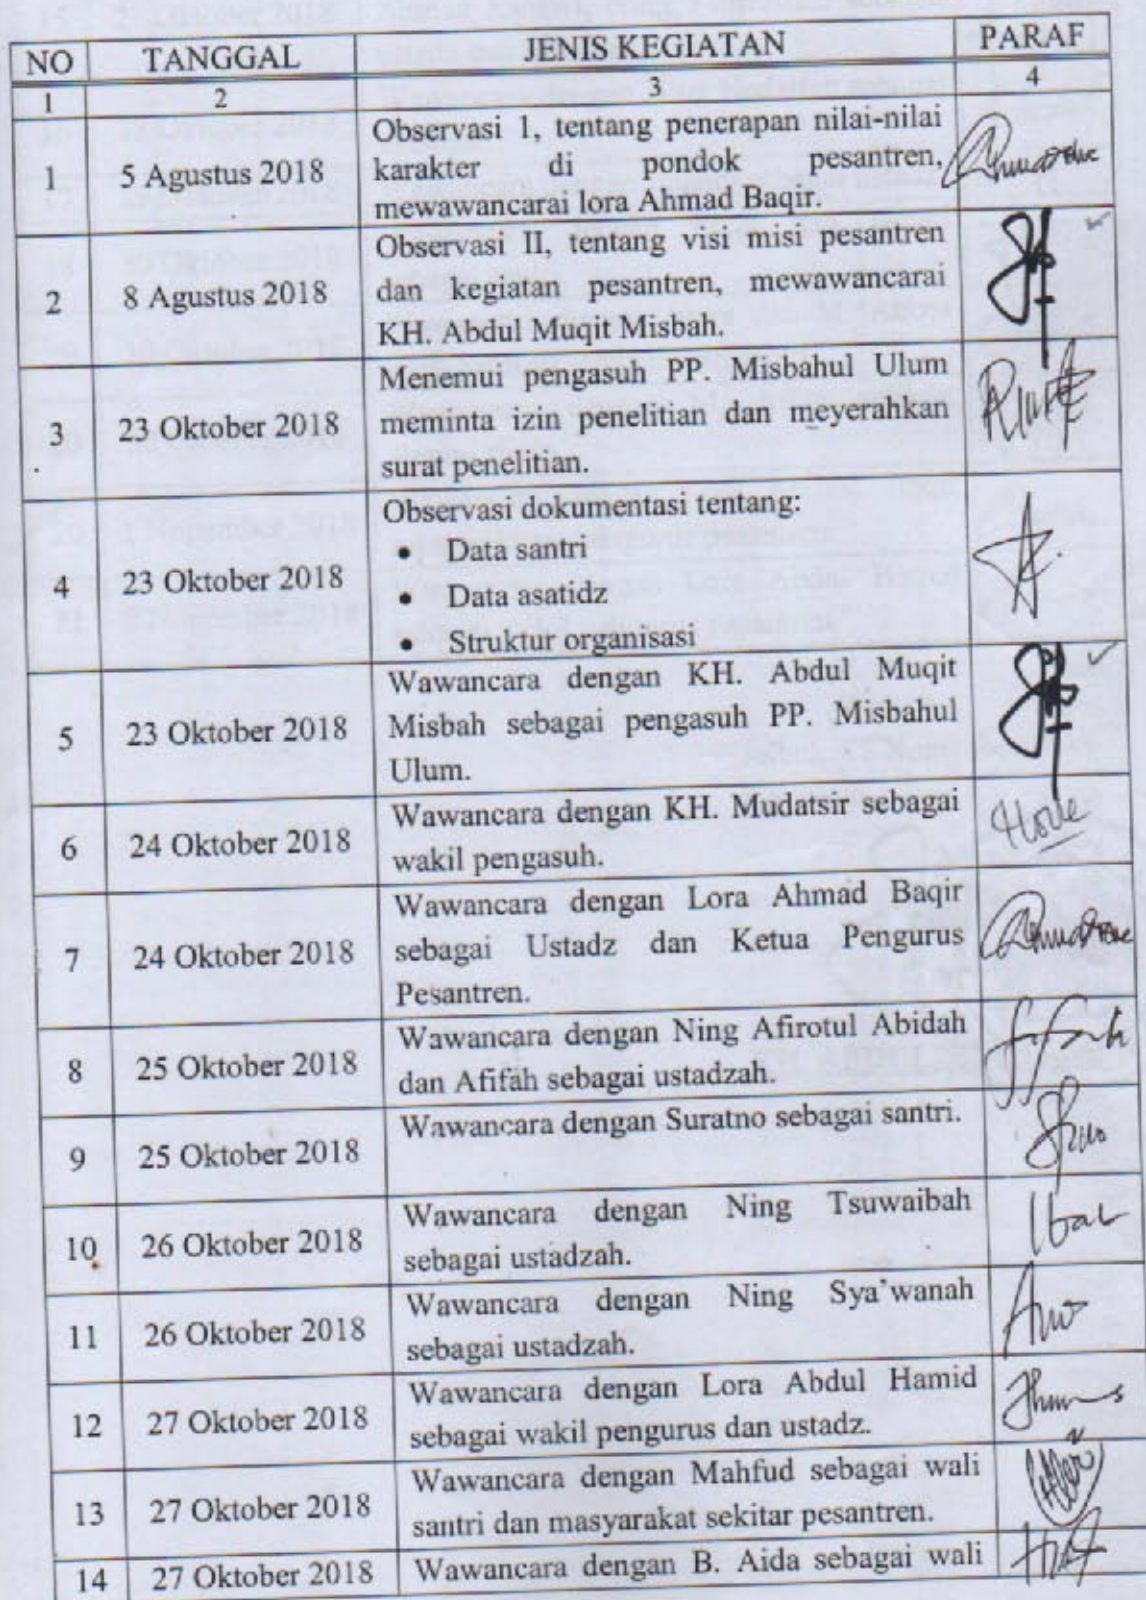 NO TANGGAL JENIS KEGIATAN PARAF
1 2 3 4
1 5 Agustus 2018 Observasi 1, tentang penerapan nilai-nilai
karakter di pondok pesantren,
mewawancarai lora Ahmad Baqir.
2 8 Agustus 2018 Observasi II, tentang visi misi pesantren
dan kegiatan pesantren, mewawancarai
KH. Abdul Muqit Misbah.
3 23 Oktober 2018 Menemui pengasuh PP. Misbahul Ulum
meminta izin penelitian dan meyerahkan
surat penelitian.
4 23 Oktober 2018 Observasi dokumentasi tentang:
• Data santri
• Data asatidz
• Struktur organisasi
5 23 Oktober 2018 Wawancara dengan KH. Abdul Muqit
Misbah sebagai pengasuh PP. Misbahul
Ulum.
6 24 Oktober 2018 Wawancara dengan KH. Mudatsir sebagai
wakil pengasuh.
7 24 Oktober 2018 Wawancara dengan Lora Ahmad Baqir
sebagai Ustadz dan Ketua Pengurus
Pesantren.
8 25 Oktober 2018 Wawancara dengan Ning Afirotul Abidah
dan Afifah sebagai ustadzah.
9 25 Oktober 2018 Wawancara dengan Suratno sebagai santri.
10 26 Oktober 2018 Wawancara dengan Ning Tsuwaibah
sebagai ustadzah.
11 26 Oktober 2018 Wawancara dengan Ning Sya'wanah
sebagai ustadzah.
12 27 Oktober 2018 Wawancara dengan Lora Abdul Hamid
sebagai wakil pengurus dan ustadz.
13 27 Oktober 2018 Wawancara dengan Mahfud sebagai wali
santri dan masyarakat sekitar pesantren.
14 27 Oktober 2018 Wawancara dengan B. Aida sebagai wali